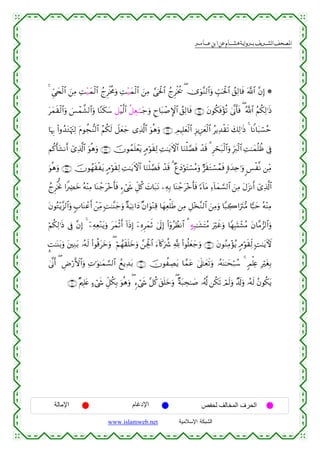 المصحف الشريف برواية هشام عن ابن عامر
* إِنَّ ٱللَّهَ فَٰلِقُ ٱلۡحَبِّ وَٱلنَّوَىٰۖ يُخۡرِجُ ٱلۡحَيَّ مِنَ ٱلۡمَيۡتِ وَمُخۡرِجُ ٱلۡمَيۡتِ مِنَ ٱلۡحَيِّۚ
ذَٰلِكُمُ ٱللَّهُۖ فَأَنَّىٰ تُؤۡفَكُونَ ٩٥ فَالِقُ ٱلۡإِصۡبَاحِ وَجَٰعِلُ ٱلَّيۡلِ سَكَنٗا وَٱلشَّمۡسَ وَٱلۡقَمَرَ
حُسۡبَانٗاۚ ذَٰلِكَ تَقۡدِيرُ ٱلۡعَزِيزِ ٱلۡعَلِيمِ ٩٦ وَهُوَ ٱلَّذِي جَعَلَ لَكُمُ ٱلنُّجُومَ لِتَهۡتَدُواْ بِهَا
فِي ظُلُمَٰتِ ٱلۡبَرِّ وَٱلۡبَحۡرِۗ قَدۡ فَصَّلۡنَا ٱلۡأٓيَٰتِ لِقَوۡمٖ يَعۡلَمُونَ ٩٧ وَهُوَ ٱلَّذِي أَنشَأَكُم
مِّن نَّفۡسٖ وَٰحِدَةٖ فَمُسۡتَقَرّٞ وَمُسۡتَوۡدَعٞۗ قَدۡ فَصَّلۡنَا ٱلۡأٓيَٰتِ لِقَوۡمٖ يَفۡقَهُونَ ٩٨ وَهُوَ
ٱلَّذِي أَنزَلَ مِنَ ٱلسَّمَآءِ مَآءٗ فَأَخۡرَجۡنَا بِهِۦ نَبَاتَ كُلِّ شَيۡءٖ فَأَخۡرَجۡنَا مِنۡهُ خَضِرٗا نُّخۡرِجُ
مِنۡهُ حَبّٗا مُّتَرَاكِبٗا وَمِنَ ٱلنَّخۡلِ مِن طَلۡعِهَا قِنۡوَانٞ دَانِيَةٞ وَجَنَّٰتٖ مِّنۡ أَعۡنَابٖ وَٱلزَّيۡتُونَ
وَٱلرُّمَّانَ مُشۡتَبِهٗا وَغَيۡرَ مُتَشَٰبِهٍۗ ٱنظُرُوٓاْ إِلَىٰ ثَمَرِهِۦٓ إِذَآ أَثۡمَرَ وَيَنۡعِهِۦٓۚ إِنَّ فِي ذَٰلِكُمۡ
لَأٓيَٰتٖ لِّقَوۡمٖ يُؤۡمِنُونَ ٩٩ وَجَعَلُواْ لِلَّهِ شُرَكَآءَ ٱلۡجِنَّ وَخَلَقَهُمۡۖ وَخَرَقُواْ لَهُۥ بَنِينَ وَبَنَٰتِۭ
بِغَيۡرِ عِلۡمٖۚ سُبۡحَٰنَهُۥ وَتَعَٰلَىٰ عَمَّا يَصِفُونَ ١٠٠ بَدِيعُ ٱلسَّمَٰوَٰتِ وَٱلۡأَرۡضِۖ أَنَّىٰ
يَكُونُ لَهُۥ وَلَدٞ وَلَمۡ تَكُن لَّهُۥ صَٰحِبَةٞۖ وَخَلَقَ كُلَّ شَيۡءٖۖ وَهُوَ بِكُلِّ شَيۡءٍ عَلِيمٞ ١٠١
الحرف المخالف لحفص الإدغام الإمالة
الشبكة الإسلامية www.islamweb.net